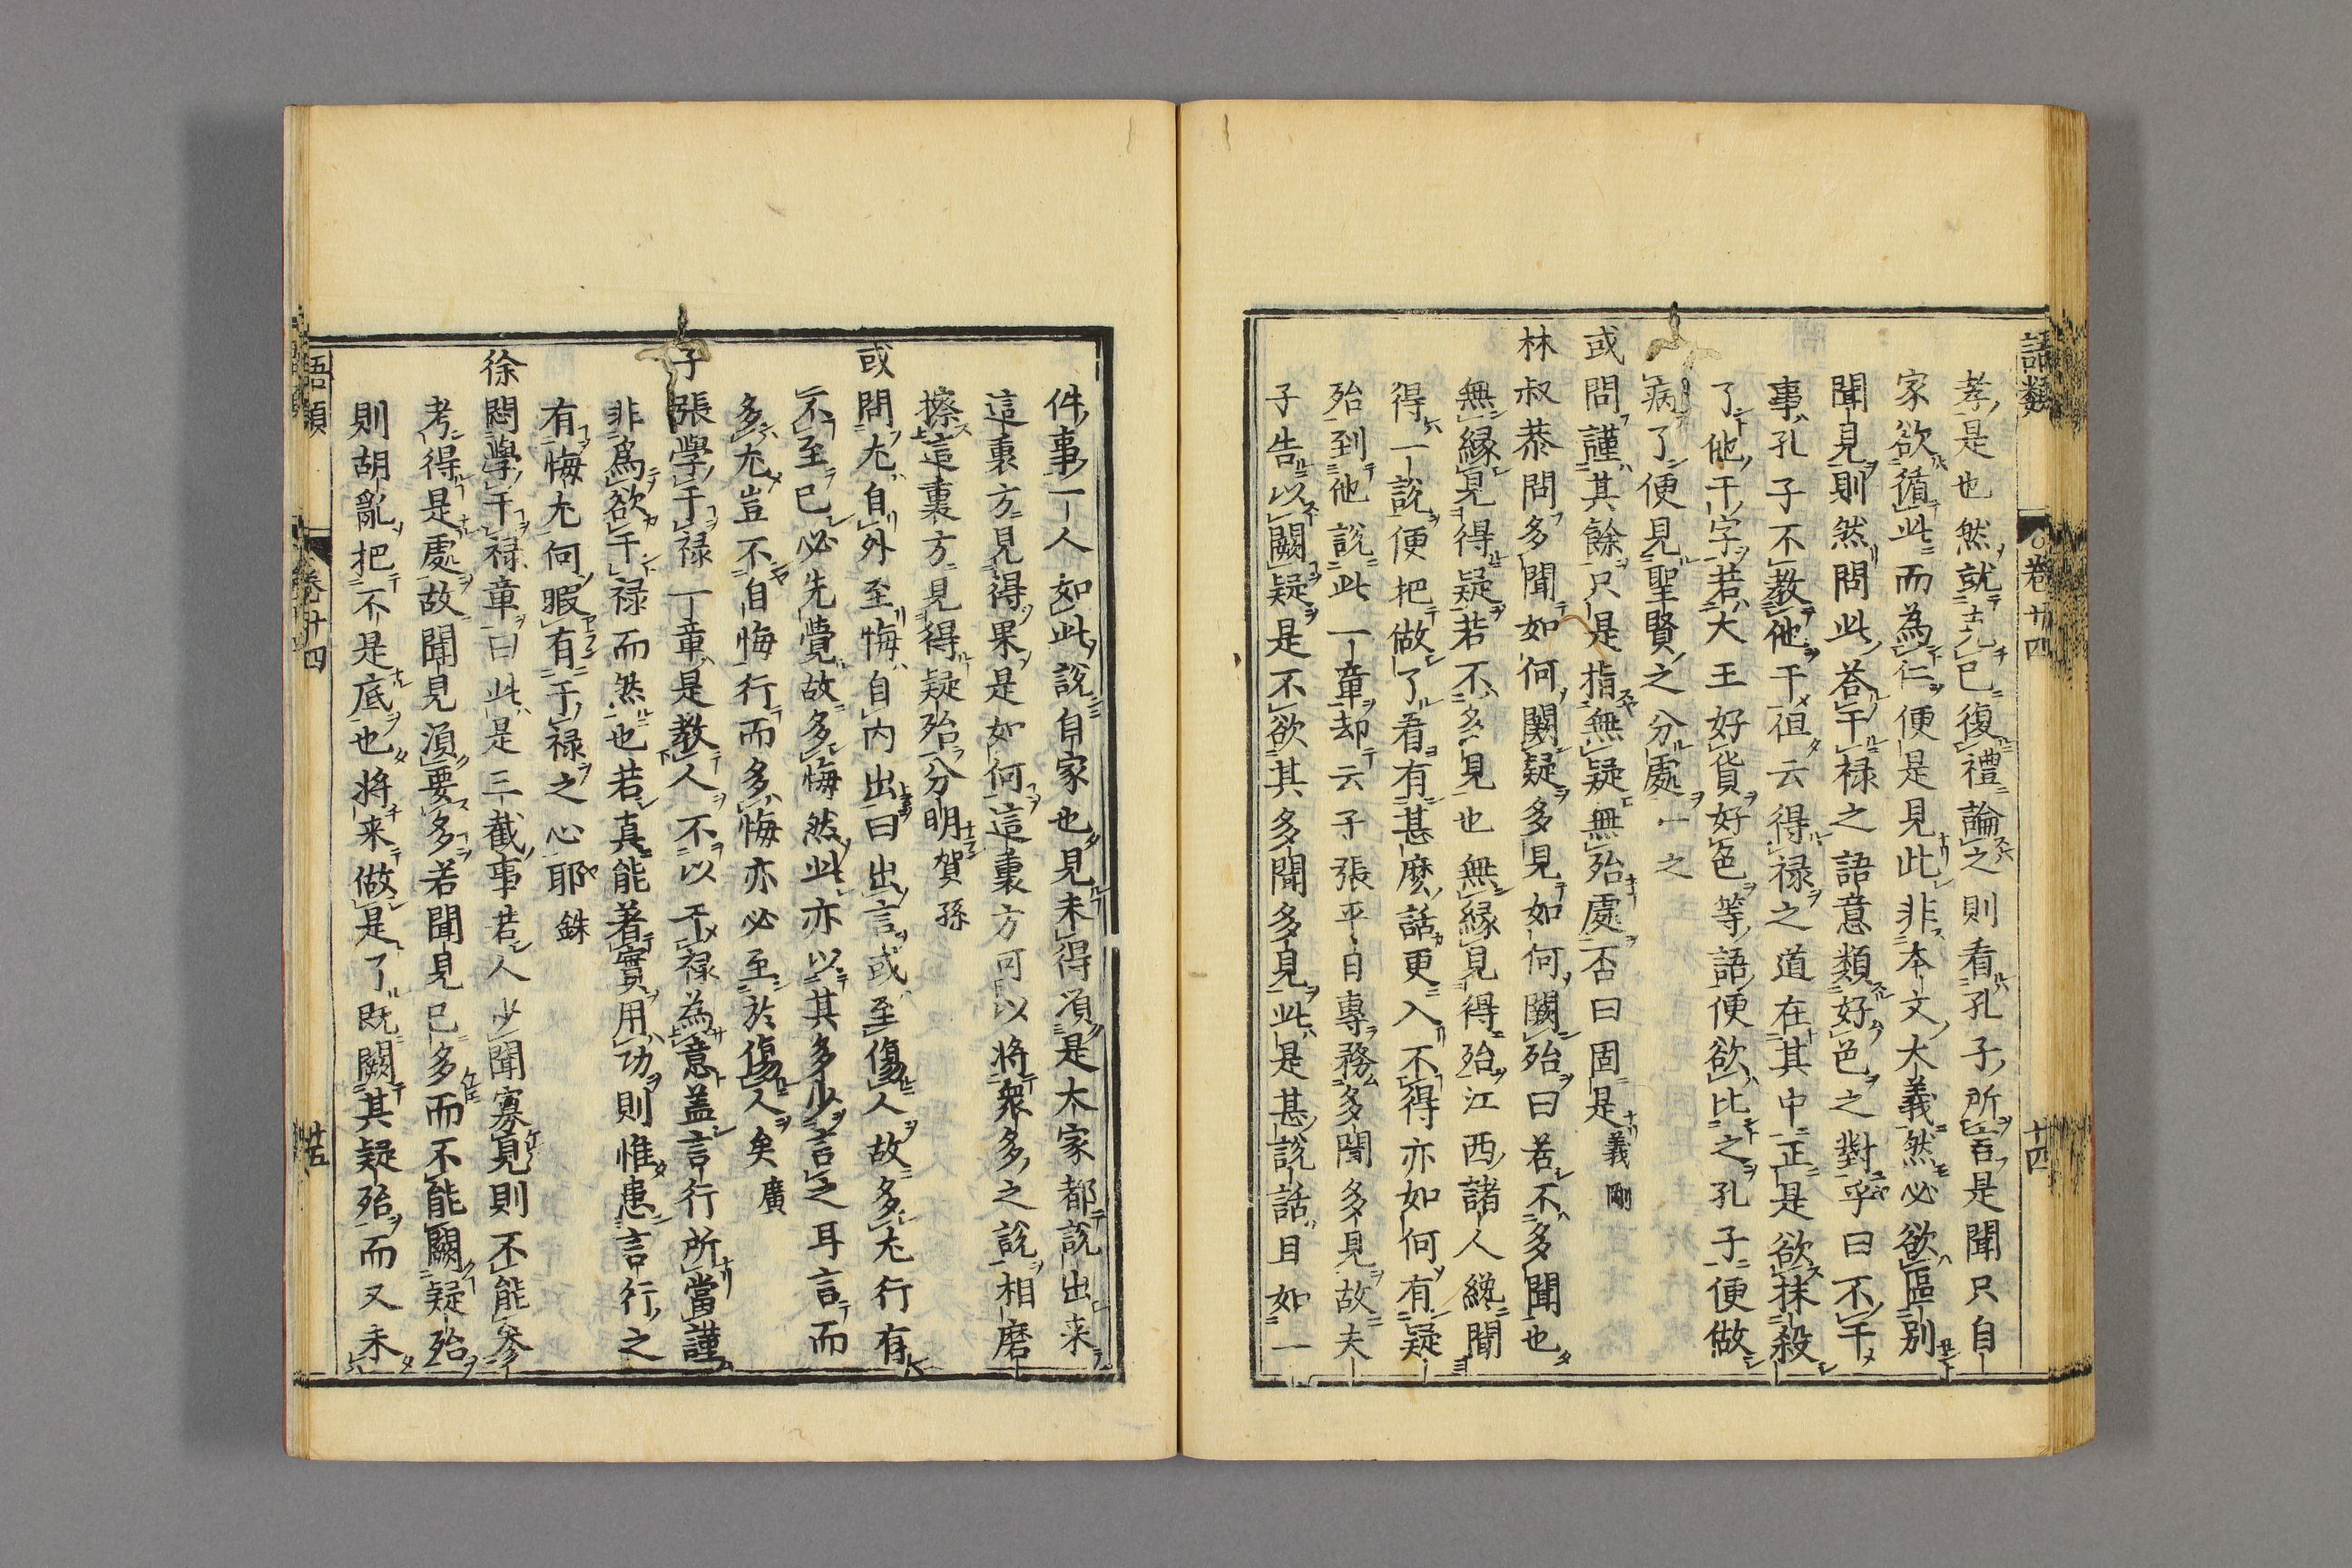 語類
卷廿四
十四
孝是也然就克己復禮論之則看孔子所言是聞只自
家欲循此而為仁便是見此非本文大義然必欲區別
聞見則然問此荅干祿之語意類好色之對乎曰不干
事孔子不教他干但云得祿之道在其中正是欲抹殺
了他干字若大王好貨好色等語便欲比之孔子便做
病了便見聖賢之分處一之
或問謹其餘只是指無疑無殆處否曰固是義剛
林叔恭問多聞如何闕疑多見如何闕殆曰若不多聞也
無緣見得疑若不多見也無緣見得殆江西諸人纔聞
得一說便把做了看有甚麽話更入不得亦如何有疑
殆到他說此一章却云子張平日專務多聞多見故夫
子告以闕疑是不欲其多聞多見此是甚說話且如一
件事一人如此說自家也見未得須是大家都說出来
這裏方見得果是如何這裏方可以將衆多之說相磨
擦這裏方見得疑殆分明賀孫
或問尤自外至悔自內出曰出言或至傷人故多尤行有
不至已必先覺故多悔然此亦以其多少言之耳言而
多尤豈不自悔行而多悔亦必至於傷人矣廣
子張學干祿一章是教人不以干祿為意盖言行所當謹
非為欲干祿而然也若真能著實用功則惟患言行之
有悔尤何暇有干祿之心耶銖
徐問學干祿章曰此是三截事若人少聞寡見則不能參
考得是處故聞見須要多若聞見已多而不能闕疑殆
則胡亂把不是底也將来做是了既闕其疑殆而又未
語類
卷廿四
十五